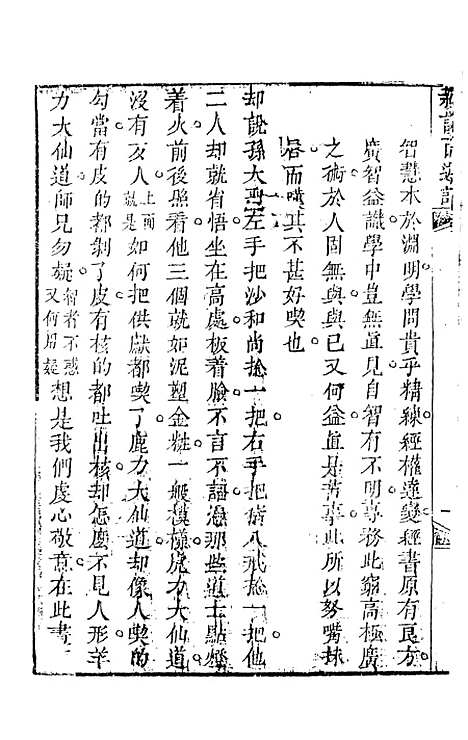 智慧本於淵明學問貴乎精練經權達變經書原有良方
廣智益識學中豈無道見自智有不明專務此窮高極廣
之術於人固無與與已又何益直是苦事此所以努嘴抹
唇而嘆其不甚好喫也
却說孫大聖左手把沙和尚捻一把右手把猪八戒捻一把他
二人却就省悟坐在高處板着臉不言不語憑那些道士點燈
着火前後照看他三個就如泥塑金粧一般模樣虎力大仙道
沒有歹人上面就是如何把供獻都喫了鹿力大仙道却像人喫的
勾當有皮的都剝了皮有核的都吐出核却怎麽不見人形羊
力大仙道師兄勿疑智者不惑又何用疑想是我們虔心敬意在此晝